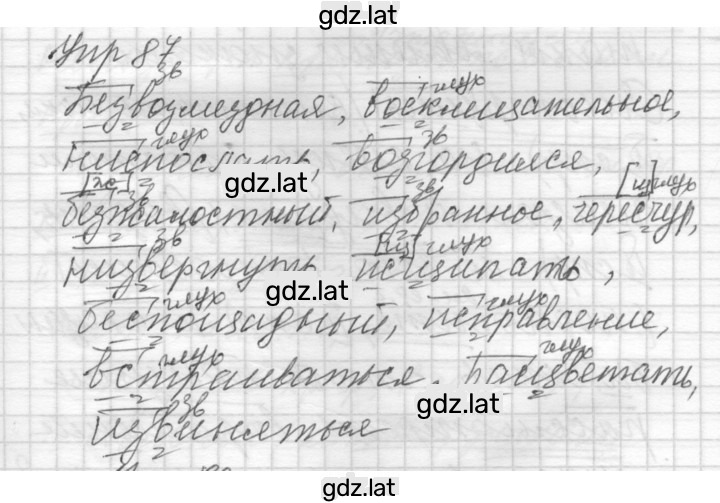 gdz.lat
Упр 87
зв глух
Безвозмездная, восклицательное,
глух зв
ниспослать, возгордился,
gdz.lat
[ж] зв зв [щ] глух
безжалостный, избранное, чересчур,
зв [щ] глух
низвергнуть исщипать,
gdz.lat
глух глух
беспощадный, исправление,
глух глух
встраиваться. расцветать,
gdz.lat
зв
извиняться
gdz.lat